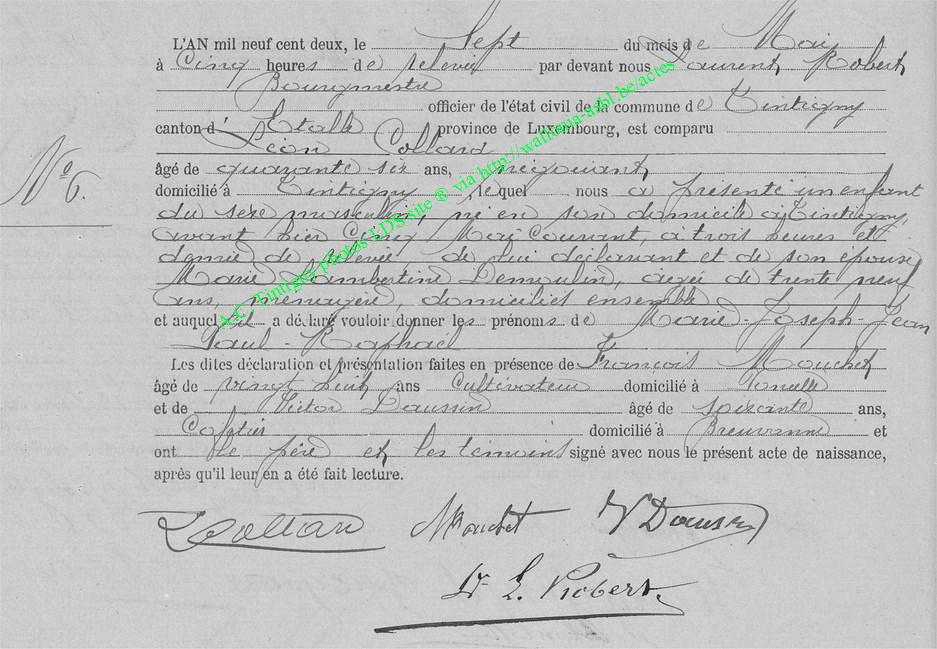 L'AN mil neuf cent deux, le Sept du mois de Mai
à Cinq heures de relevée par devant nous Laurent Robert
Bourgmestre
officier de l'état civil de la commune de Tintigny
canton d'Etalle province de Luxembourg, est comparu
Léon Collard
âgé de quarante six ans, négociant
domicilié à Tintigny lequel nous a présenté un enfant
du sexe masculin, né en son domicile à Tintigny,
avant hier Cinq Mai Courant, à trois heures et
demie de relevée, de lui déclarant et de son épouse
Marie Lambertine Demoulin, agée de trente neuf
ans, ménagère, domiciliés ensemble
et auquel il a déclaré vouloir donner les prénoms de Marie-Joseph-Jean
Paul-Raphaël
Les dites déclaration et présentation faites en présence de François Mouchet
âgé de vingt huit ans Cultivateur domicilié à
et de Victor Daussin âgé de soixante ans,
domicilié à Breuvanne et
ont le père et les témoins signé avec nous le présent acte de naissance,
après qu'il leur en a été fait lecture.
No 6.
LCollard Mouchet V Daussin
Dr L. Robert
A.C. Tintigny photos LDS site ® via http://wallonia-asbl.be/actes